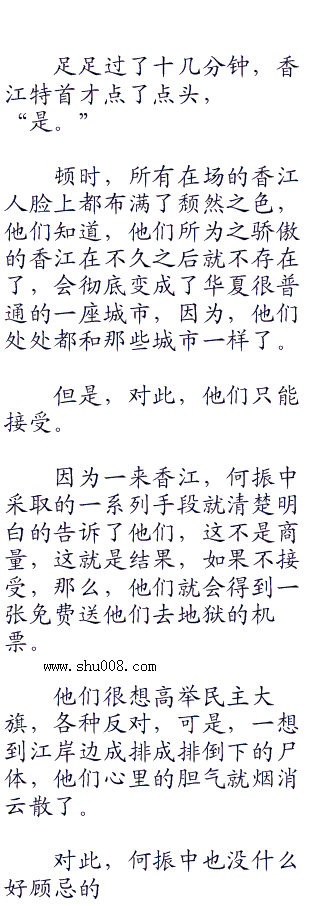 足足过了十几分钟，香
江特首才点了点头，
“是。”
顿时，所有在场的香江
人脸上都布满了颓然之色，
他们知道，他们所为之骄傲
的香江在不久之后就不存在
了，会彻底变成了华夏很普
通的一座城市，因为，他们
处处都和那些城市一样了。
但是，对此，他们只能
接受。
因为一来香江，何振中
采取的一系列手段就清楚明
白的告诉了他们，这不是商
量，这就是结果，如果不接
受，那么，他们就会得到一
张免费送他们去地狱的机
票。
www.shu008.com
他们很想高举民主大
旗，各种反对，可是，一想
到江岸边成排成排倒下的尸
体，他们心里的胆气就烟消
云散了。
对此，何振中也没什么
好顾忌的